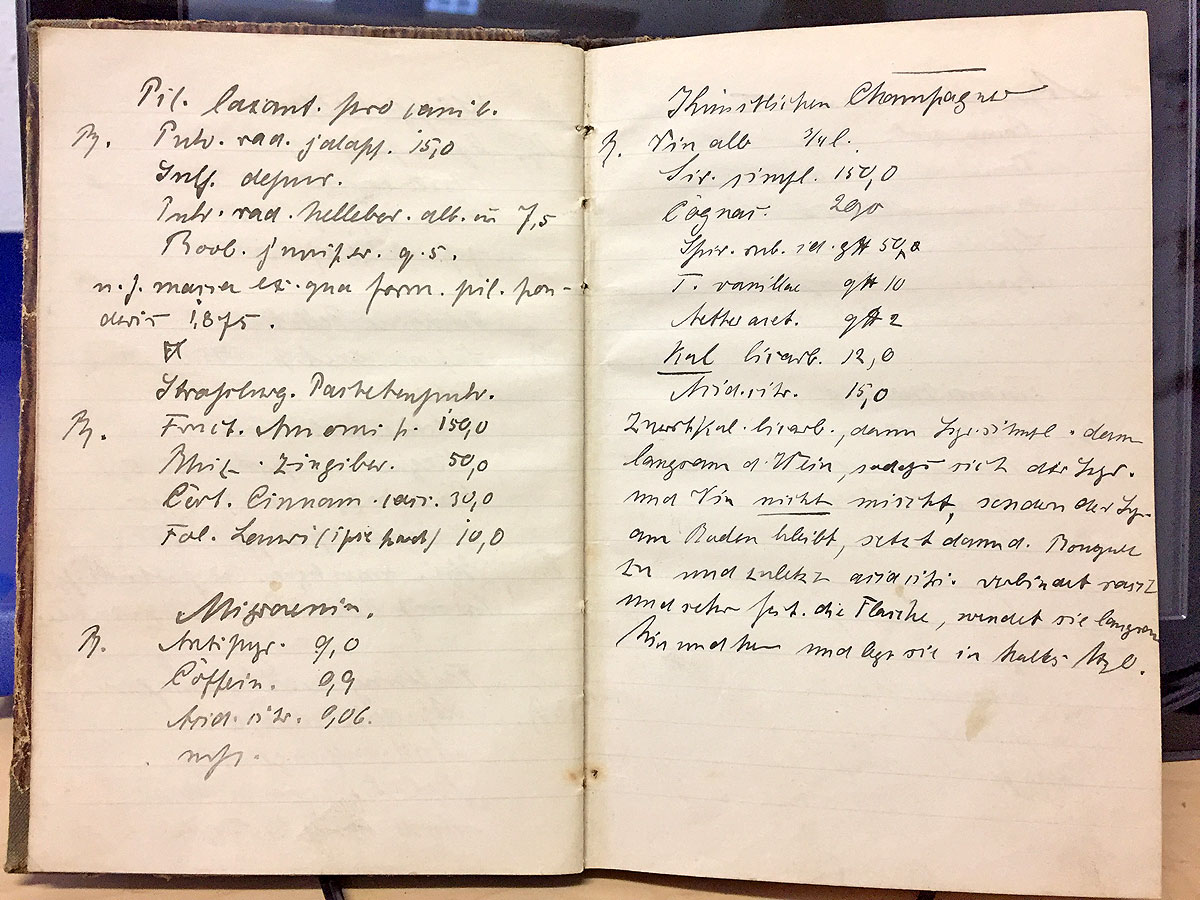 Pil. laxant. pro canib.
Rp. Pulv. rad. jalapp. 15,0
Sulf. depur.
Pulv. rad. helleber. alb. āā 7,5
Roob. juniper. q. s.
m. f. massa ex qua form. pil. pon-
deris 1,875.
Strassburg. Pastetenpulv.
Rp. Fruct. Amomi p. 150,0
Rhiz. Zingiber. 50,0
Cort. Cinnam. cass. 30,0
Fol. Lauri 10,0
Migraenin.
Rp. Antipyr. 9,0
Coffein. 0,9
Acid. citr. 0,06.
Künstlichen Champagner
R. Vin alb 3/4 l.
Sir. simpl. 150,0
Cognac. 20,0
Spir. 50,0
T. vanillae gtt 10
Aether acet. gtt 2
Kal bicarb. 12,0
Acid. citr. 15,0
Zuerst Kal. bicarb., dann Syr. simpl. dann
langsam d. Wein, sodass sich der Syr.
und Vin nicht mischt, sondern der Syr.
am Boden bleibt, setzt dann d. Bouquet
zu und zuletzt acid citr. verbindet rasch
und sehr fest die Flasche, wendet sie langsam
hin und her und legt sie in kaltes